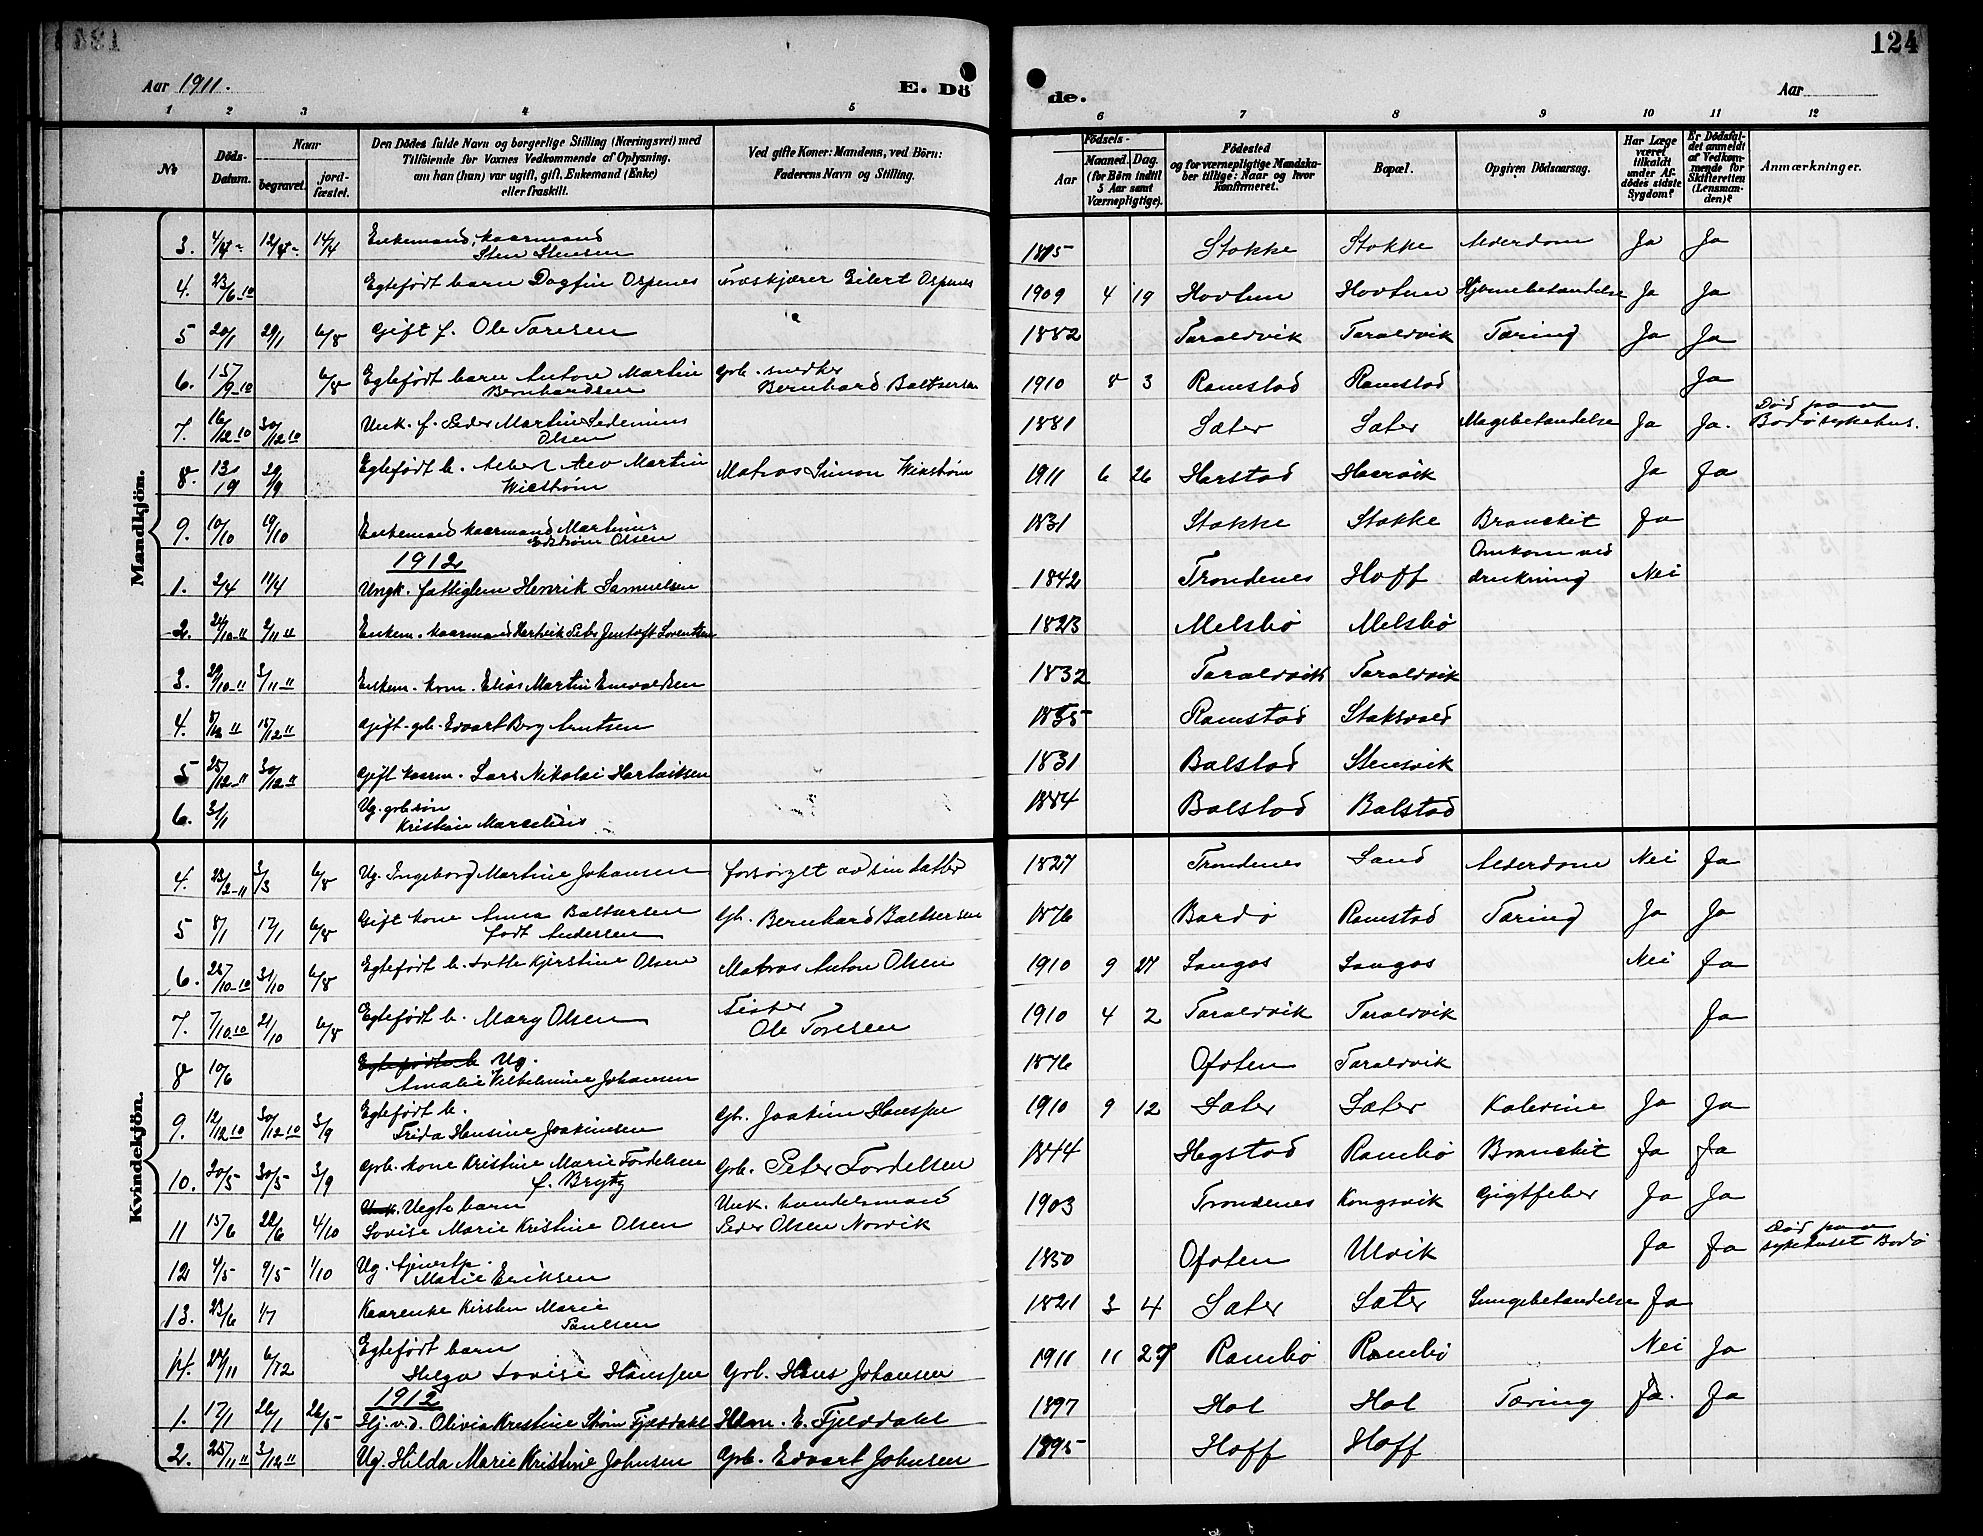 124
Aar 1911.
E. Dö
de.
Aar
1 2 3 4 5
6 7 8 9 10 11 12
No
Döds-Datum.
Naar
begravet.
jord-fæstet.
Den Dödes fulde Navn og borgerlige Stilling (Næringsvei) med
Tilföiende for Voxnes Vedkommende af Oplysning,
om han (hun) var ugift, gift, Enkemand (Enke)
eller fraskilt.
Ved gifte Koner: Mandens, ved Börn:
Faderens Navn og Stilling.
Födsels-
Aar
Maaned. Dag.
(for Börn indtil
5 Aar samt
Værnepligtige).
Födested
og for værnepligtige Mandska-
ber tillige: Naar og hvor
Konfirmeret.
Bopæl.
Opgiven Dödsaarsag.
Har Læge
været
tilkaldt
under Af-
dödes sidste
Sygdom?
Er Dödsfal-
det anmeldt
af Vedkom-
mende for
Skifteretten
(Lensman-
den)?
Anmærkninger.
Mandkjöm.
3. 12/4 14/4 Enkemand, kaarmand Sten Stensen 1815 Stokke Stokke Alderdom Ja Ja
4. 23/6-10 Egtefødt barn Dagfin Ospenes Træskjærer Eilert Ospenes 1909 4 19 Hovtun Hovtun Hjernebetændelse Ja Ja
5 20/1 29/1 6/8 Gift f. Ole Toresen 1882 Taraldvik Taraldvik Tæring Ja Ja
6. 15/9-10 6/8 Egtefødt barn Anton Martin Bernhardsen Grb. snedker Bernhard Baltsersen 1910 8 3 Ramstad Ramstad Ja
7. 16/12-10 30/12-10 Unk. f. Peder Martin Sedenius Olsen 1881 Sæter Sæter Magebetændelse Ja Ja. Død paa Bodø sykehus.
8. 13/9 29/9 Egtefødt b. Albert Martin Wikstrøm Matros Simon Wikstrøm 1911 6 26 Harstad Haarvik Ja Ja
9. 10/10 19/10 Enkemand kaarmand Martinus Edstrøm Olsen 1831 Stokke Stokke Bronchit Ja
1912
1. 2/4 11/4 Ungk. fattiglem Henrik Samuelsen 1842 Trondenes Hoff Omkom ved drukning Nei
2. 24/10-11 2/11 11 Enkem. kaarmand Hartvik Jentoft Lorentsen 1823 Melsbø Melsbø
3. 3/11-11 Enkem. kom. Elias Martin Envaldsen 1832 Taraldvik Taraldvik
4. 8/12 11 15/12 11 Gift. grb. Edvart Berg Arntsen 1835 Ramstad
5 25/12-11 30/12-11 Gift kaarm. Lars Nikolai Hartviksen 1831 Balstad Stensvik
6. 3/1 Ug. grb.søn Kristian Marcelius 1884 Balstad Balstad
Kvindekjön.
4. 23/2-11 3/3 6/8 Ug. Ingeborg Martine Johansen forsørget av sin datter 1827 Trondenes Sand Alderdom Nei Ja
5 8/1 17/1 6/8 Gift kone Anna Baltsersen født Andersen Gb. Bernhard Baltsersen 1876 Bardø Ramstad Tæring Ja Ja
6. 25/10-10 31/10 6/8 Egtefødt b. Lotte Kjerstine Olsen Matros Anton Olsen 1910 9 27 Sangos Sangos Nei Ja
7. 7/10.10 21/10 6/8 Egtefødt b. Mary Olsen Fisker Ole Toresen 1910 4 2 Taraldvik Taraldvik Ja
8 10/6 Egtefødt b Ug. Amalie Vilhelmine Johansen 1876 Ofoten Taraldvik
9. 12/12 10 30/12 10 3/9 Egtefødt b. Frida Hansine Joakimsen Gb. Joakim Hanssen 1910 9 12 Sæter Sæter Kolerine Ja Ja
10. 20/5 30/5 3/9 Grb. kone Kristine Marie Tordelsen f. Brytz Grb. Peter Tordelsen 1844 Hegstad Rambø Bronchit Ja Ja
11 15/6 22/6 4/10 Unk. Uegte barn Lovise Marie Kristine Olsen Unk. handelsmand Peder Olsen Norvik 1903 Trondenes Kongsvik Gigtfeber Ja Ja
12 4/5 9/5 1/10 Ug. tjenestp. Marie Eriksen 1850 Ofoten Ulvik Ja Ja Død paa sykehuset Bodø
13. 23/6 1/7 Kaarenke Kirsten Marie Paulsen 1821 3 4 Sæter Sæter Lungebetændelse Ja
14. 27/11 6/12 Egtefødt barn Helga Lovise Hanssen Grb. Hans Johansen 1911 11 27 Rambø Rambø Nei Ja
1912
1. 17/1 26/1 26/5 Hj. v.d. Olivia Kristine Strøm Fjelddahl Hdm. E. Fjelddahl 1897 Hol Hol Tæring Ja. Ja
2. 25/11 11 3/12 11 Ug. Hilda Marie Kristine Johnsen Grb. Edvart Johnsen 1895 Hoff Hoff